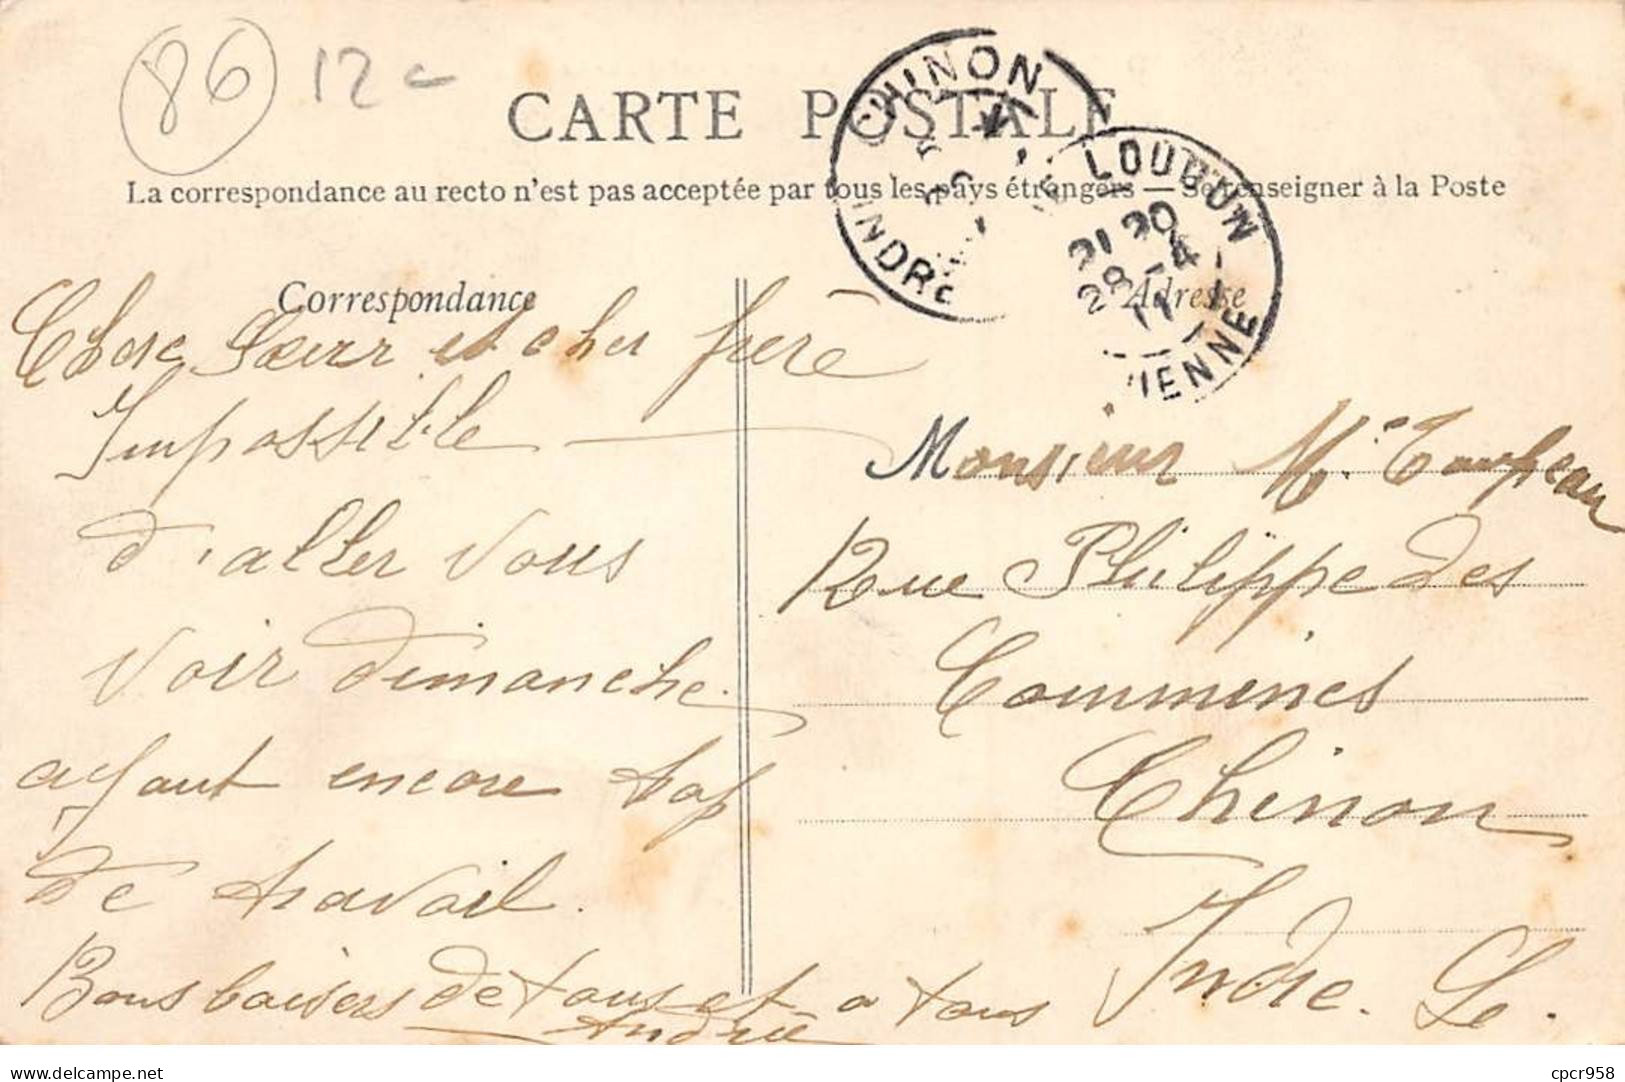 86 12c
CARTE POSTALE
La correspondance au recto n'est pas acceptée par tous les pays étrangers — Se renseigner à la Poste
CHINON
INDRE
LOUDUN
21 20
28 - 4
11
VIENNE
Correspondance
Adresse
Chere Sœur et cher frère
Impossible
d'aller vous
voir dimanche.
ayant encore trop
de travail.
Bons baisers de tous et a tous
Monsieur
Rue Philippe des
Commines
Chinon
Indre. Le.
delcampe.net
cpcr958